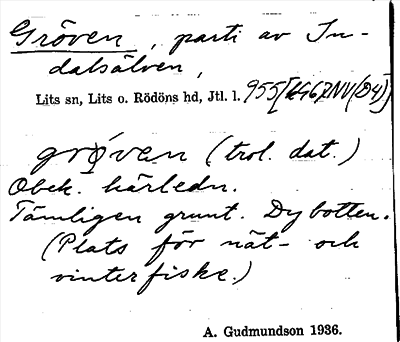 Gröven, parti av In-
dalsälven,
Lits sn, Lits o. Rödöns hd, Jtl. l. 955
grøven (trol. dat.)
Obek. härledn.
Tämligen grunt. Dybotten.
(Plats för nät- och
vinterfiske.)
A. Gudmundson 1936.